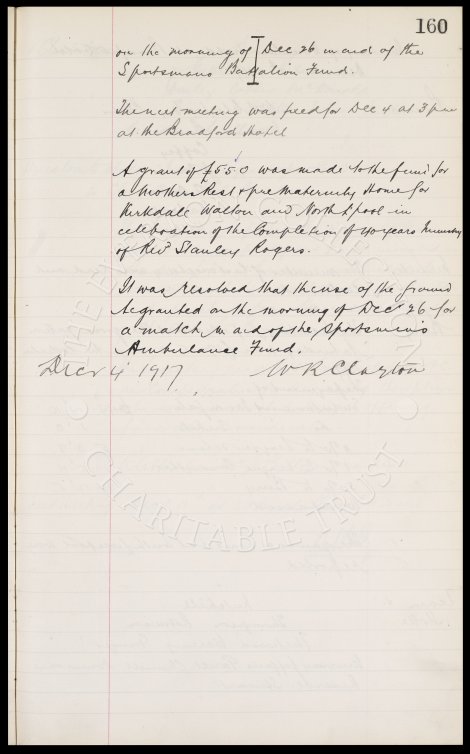 160
on the morning of Dec 26 in aid of the
Sportsmans Battalion Fund.
The next meeting was fixed for Dec 4 at 3 pm
at the Bradford Hotel
A grant of £550 was made to the fund for
a Mothers Rest & pre Maternity Home for
Kirkdale Walton and North L'pool in
celebration of the Completion of 40 years Ministry
of Revd Stanley Rogers.
It was resolved that the use of the ground
be granted on the morning of Dec 26 for
a match in aid of the Sportsmens
Ambulance Fund.
Decr 4 1917 W R Clayton
CHARITABLE TRUST